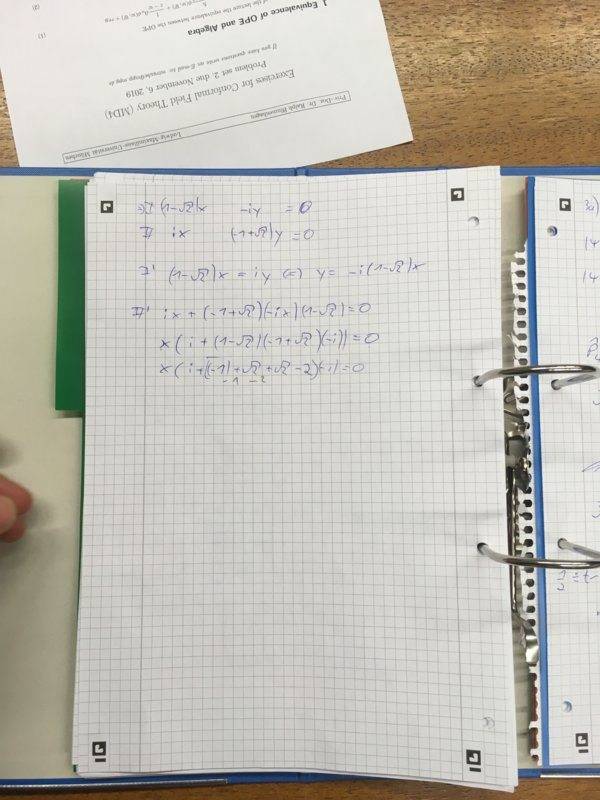 Priv.-Doz. Dr. Ralph Blumenhagen
Ludwig-Maximilians-Universität München
Exercises for Conformal Field Theory (MD4)
Problem set 2, due November, 6, 2019
If you have questions write an E-mail to:
1 Equivalence of OPE and Algebra
of the lecture the equivalence between the OPE
(1)
(2)
(1-√2)x -iy = 0
II ix (-1+√2)y=0
I' (1-√2)x = iy (=) y= -i(1-√2)x
II' ix + (-1+√2)(-ix)(1-√2)=0
x( i + (1-√2)(-1+√2)(-i))=0
x( i+((-1)+√2+√2-2)(-i)=0
-1 -2
3a)
14
14